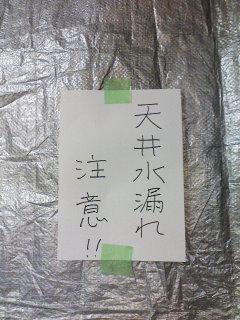 天井水漏れ
注意!!